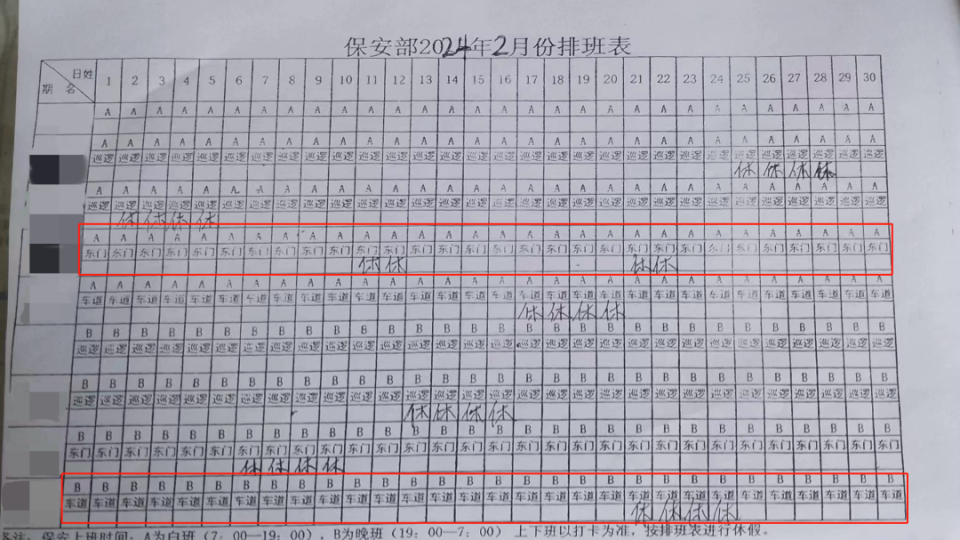 保安部2024年2月份排班表
日姓 1 2 3 4 5 6 7 8 9 10 11 12 13 14 15 16 17 18 19 20 21 22 23 24 25 26 27 28 29 30
期名
A A A A A A A A A A A A A A A A A A A A A A A A A A A A A A
A A A A A A A A A A A A A A A A A A A A A A A A A A A A A A
巡逻 巡逻 巡逻 巡逻 巡逻 巡逻 巡逻 巡逻 巡逻 巡逻 巡逻 巡逻 巡逻 巡逻 巡逻 巡逻 巡逻 巡逻 巡逻 巡逻 巡逻 巡逻 巡逻 巡逻 巡逻 巡逻 巡逻 巡逻 巡逻 巡逻
休 休 休 休
A A A A A A A A A A A A A A A A A A A A A A A A A A A A A A
巡逻 巡逻 巡逻 巡逻 巡逻 巡逻 巡逻 巡逻 巡逻 巡逻 巡逻 巡逻 巡逻 巡逻 巡逻 巡逻 巡逻 巡逻 巡逻 巡逻 巡逻 巡逻 巡逻 巡逻 巡逻 巡逻 巡逻 巡逻 巡逻 巡逻
休 休 休 休
A A A A A A A A A A A A A A A A A A A A A A A A A A A A A A
东门 东门 东门 东门 东门 东门 东门 东门 东门 东门 东门 东门 东门 东门 东门 东门 东门 东门 东门 东门 东门 东门 东门 东门 东门 东门 东门 东门 东门 东门
休 休 休 休
A A A A A A A A A A A A A A A A A A A A A A A A A A A A A A
车道 车道 车道 车道 车道 车道 车道 车道 车道 车道 车道 车道 车道 车道 车道 车道 车道 车道 车道 车道 车道 车道 车道 车道 车道 车道 车道 车道 车道 车道
休 休 休 休
B B B B B B B B B B B B B B B B B B B B B B B B B B B B B B
巡逻 巡逻 巡逻 巡逻 巡逻 巡逻 巡逻 巡逻 巡逻 巡逻 巡逻 巡逻 巡逻 巡逻 巡逻 巡逻 巡逻 巡逻 巡逻 巡逻 巡逻 巡逻 巡逻 巡逻 巡逻 巡逻 巡逻 巡逻 巡逻 巡逻
B B B B B B B B B B B B B B B B B B B B B B B B B B B B B B
巡逻 巡逻 巡逻 巡逻 巡逻 巡逻 巡逻 巡逻 巡逻 巡逻 巡逻 巡逻 巡逻 巡逻 巡逻 巡逻 巡逻 巡逻 巡逻 巡逻 巡逻 巡逻 巡逻 巡逻 巡逻 巡逻 巡逻 巡逻 巡逻 巡逻
休 休 休 休
B B B B B B B B B B B B B B B B B B B B B B B B B B B B B B
东门 东门 东门 东门 东门 东门 东门 东门 东门 东门 东门 东门 东门 东门 东门 东门 东门 东门 东门 东门 东门 东门 东门 东门 东门 东门 东门 东门 东门 东门
休 休 休 休
B B B B B B B B B B B B B B B B B B B B B B B B B B B B B B
车道 车道 车道 车道 车道 车道 车道 车道 车道 车道 车道 车道 车道 车道 车道 车道 车道 车道 车道 车道 车道 车道 车道 车道 车道 车道 车道 车道 车道 车道
休 休 休 休
备注：保安上班时间：A为白班（7：00—19：00），B为晚班（19：00—7：00） 上下班以打卡为准，按排班表进行休假。